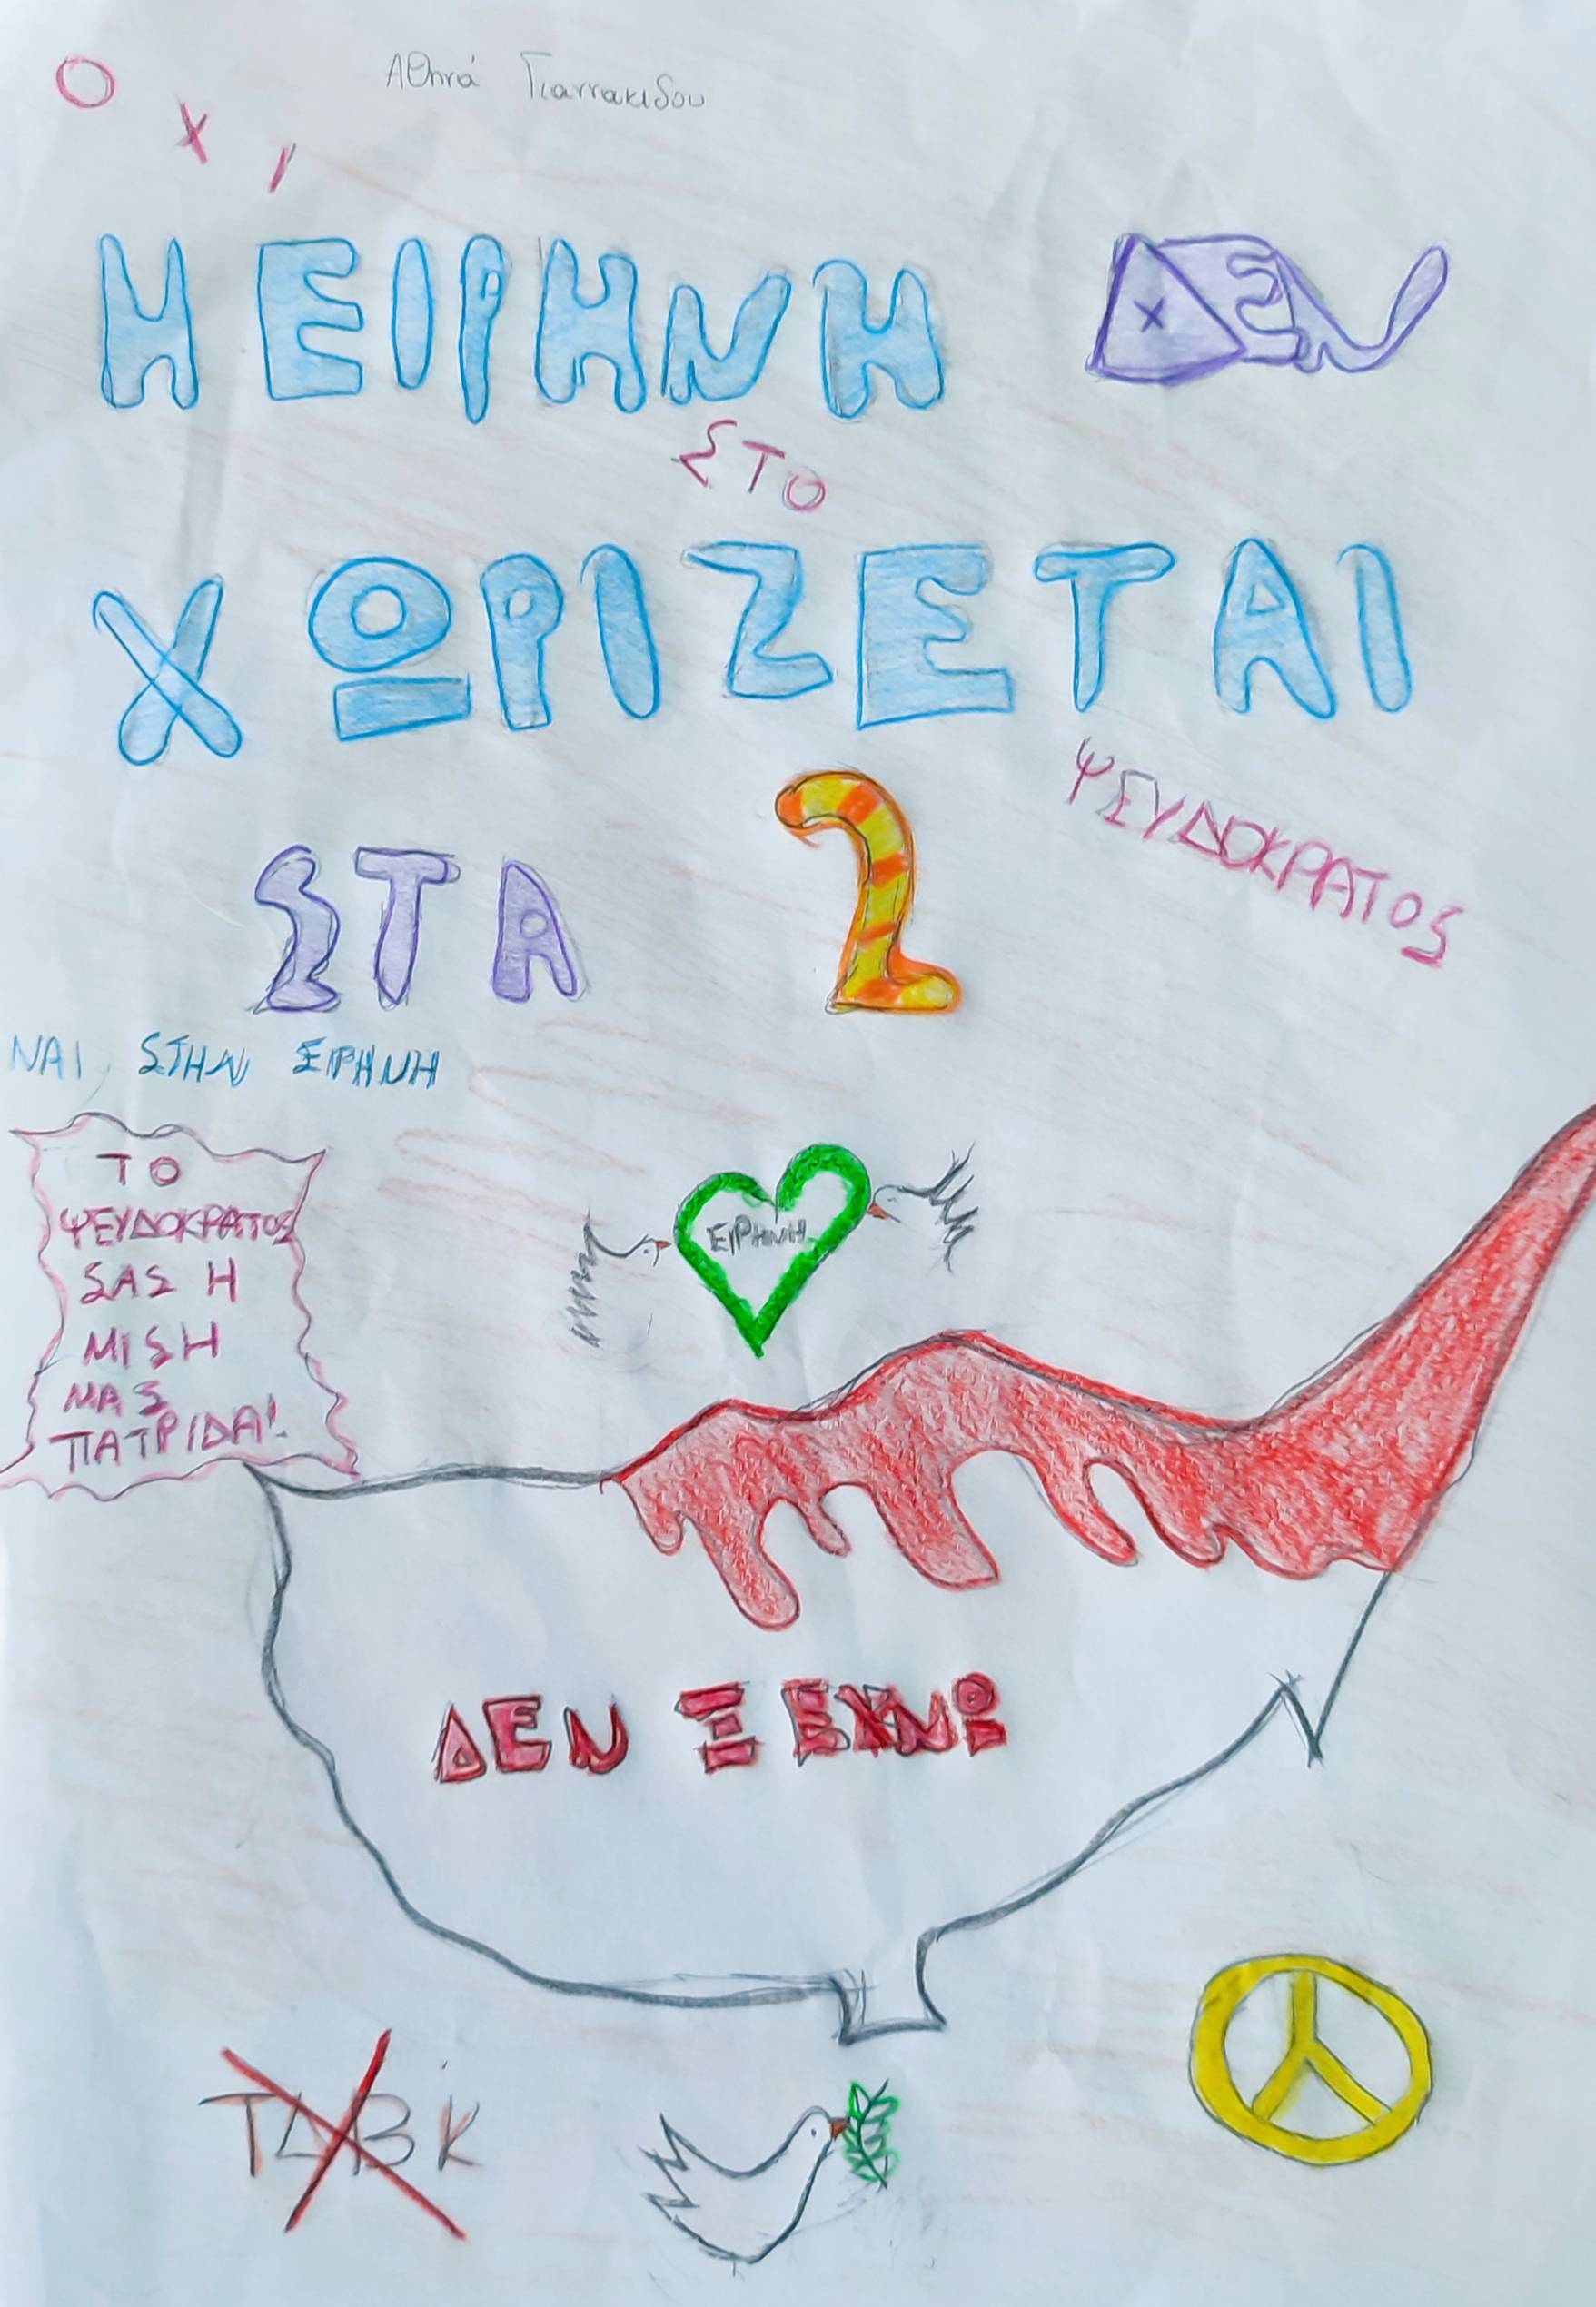 Αθηνά Γιαννακιδου
ΟΧΙ
Η ΕΙΡΗΝΗ ΔΕΝ
ΣΤΟ
ΧΩΡΙΖΕΤΑΙ
ΨΕΥΔΟΚΡΑΤΟΣ
ΣΤΑ 2
ΝΑΙ ΣΤΗΝ ΕΙΡΗΝΗ
ΤΟ
ΨΕΥΔΟΚΡΑΤΟΣ
ΣΑΣ Η
ΜΙΣΗ
ΜΑΣ
ΠΑΤΡΙΔΑ!
ΕΙΡΗΝΗ
ΔΕΝ ΞΕΧΝΩ
ΤΔΒΚ